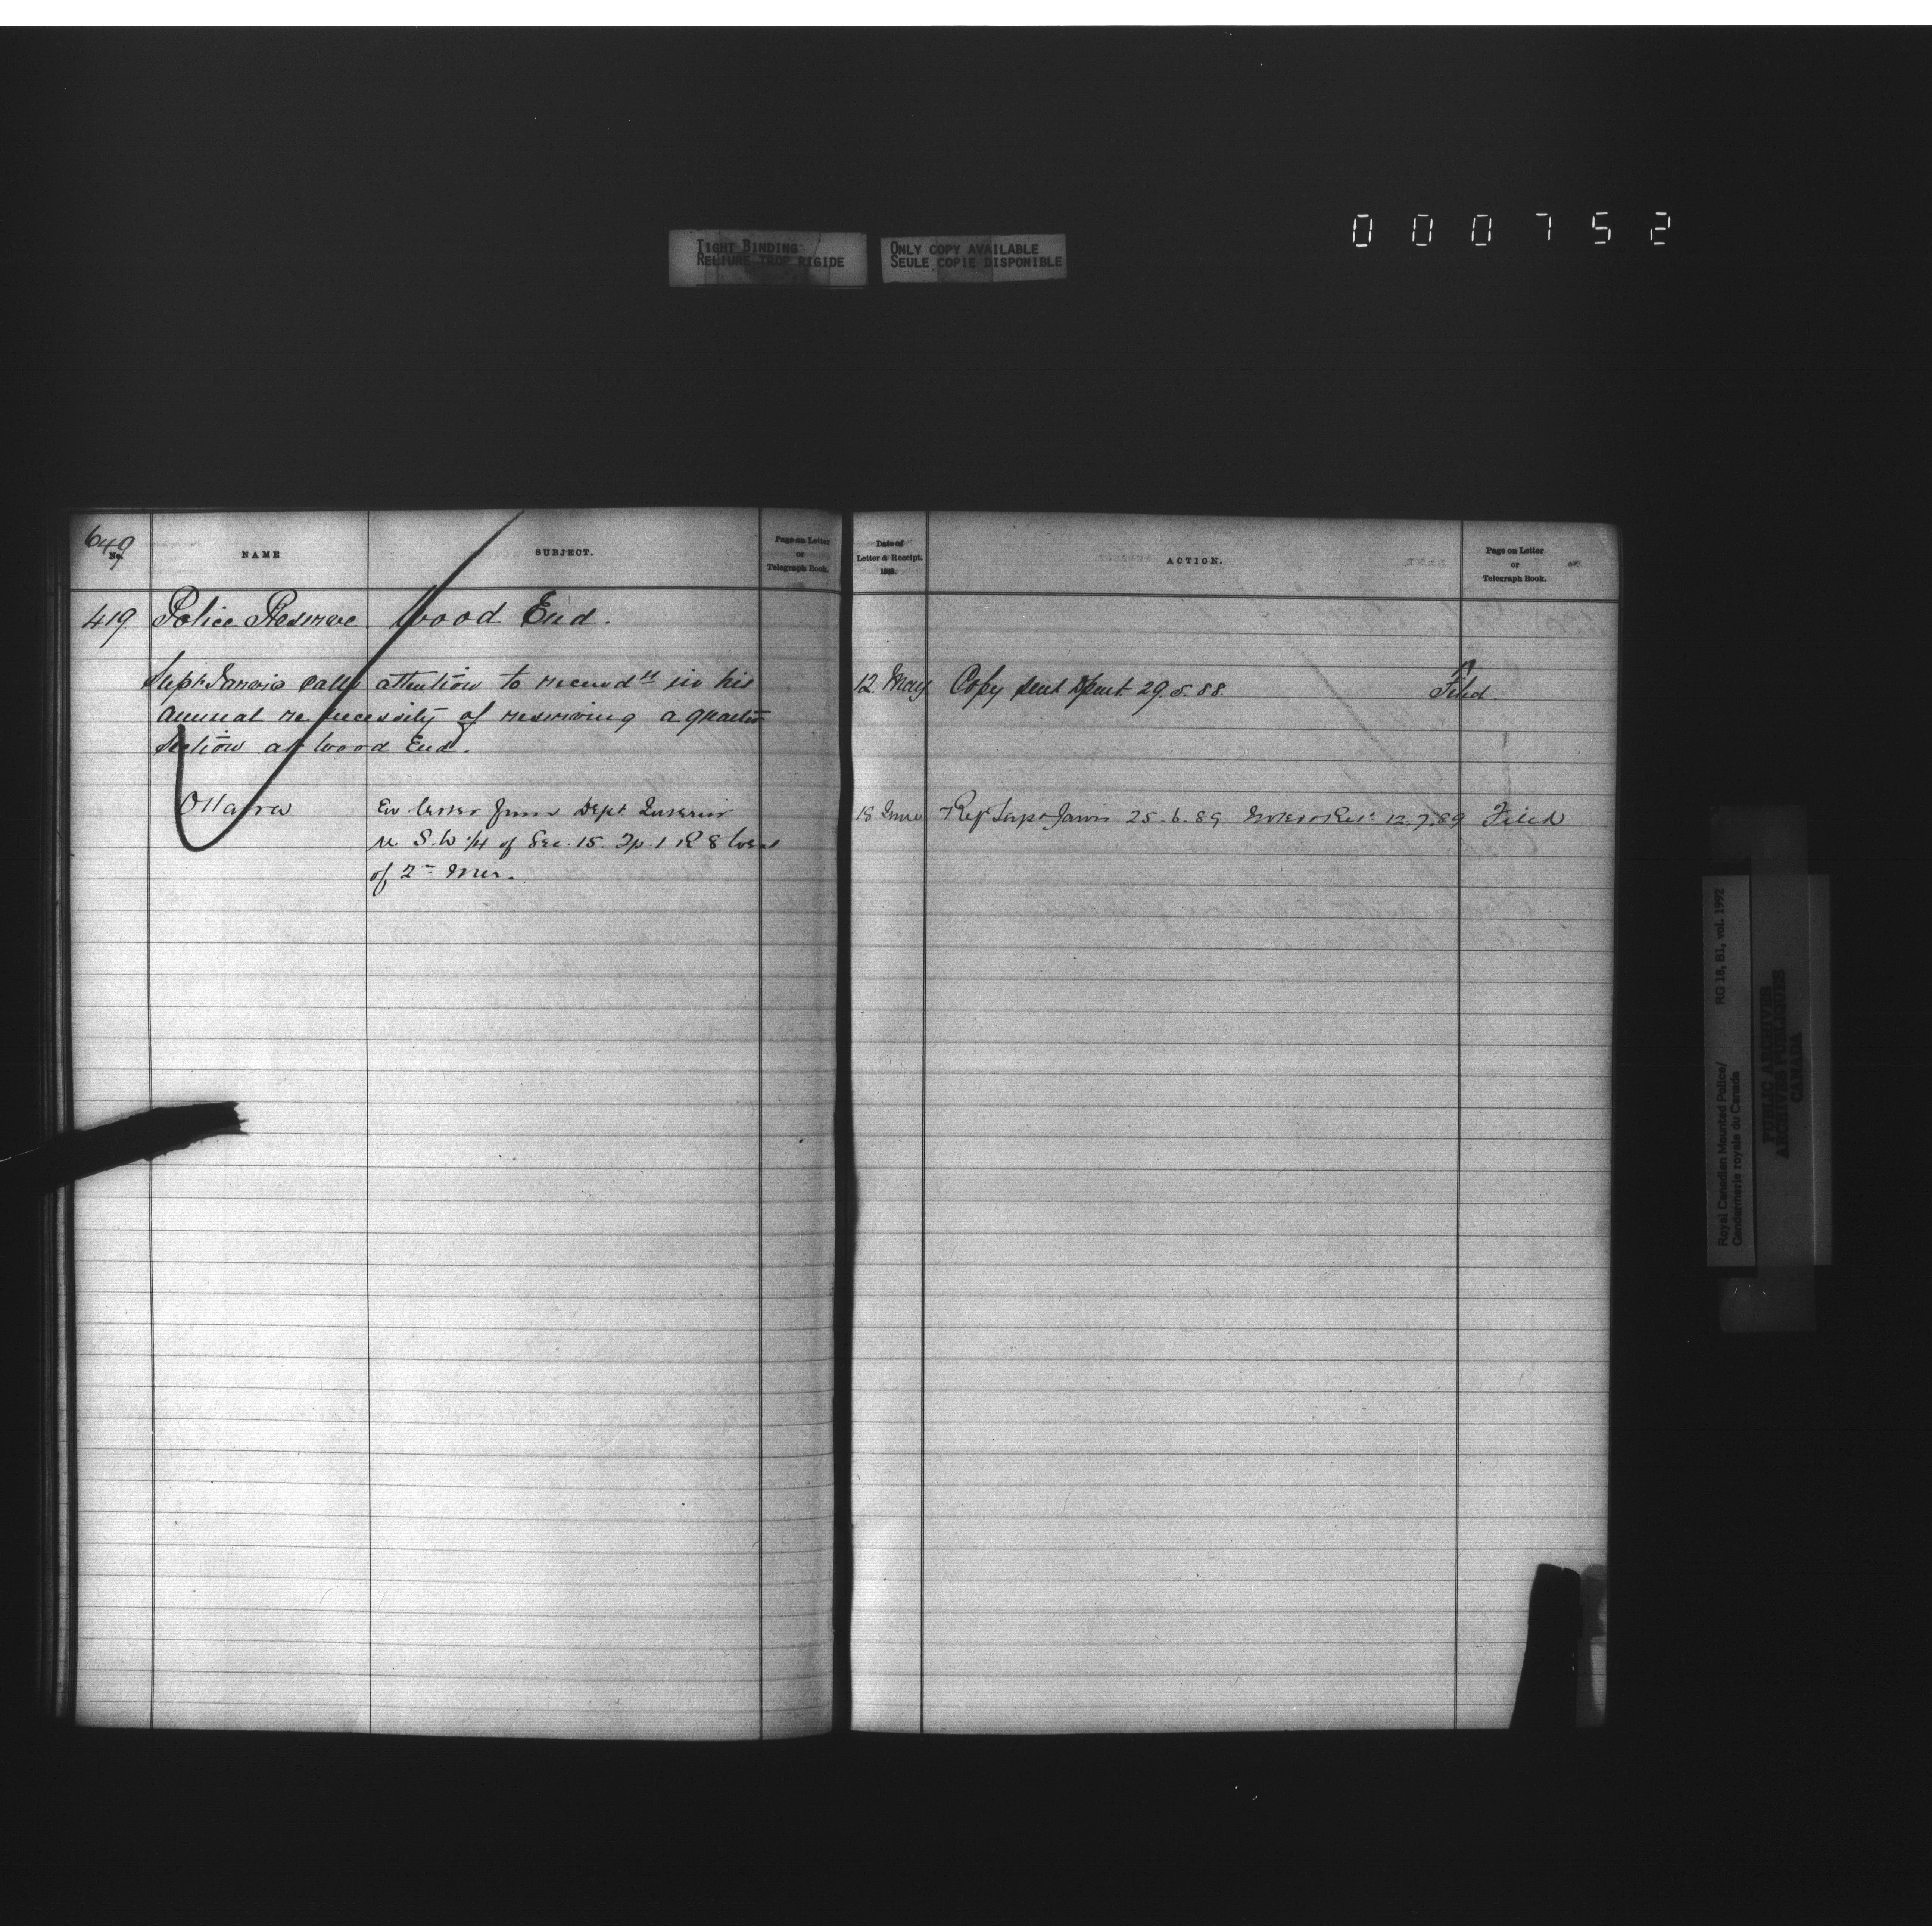 000752
TIGHT BINDING
RELIURE TROP RIGIDE
ONLY COPY AVAILABLE
SEULE COPIE DISPONIBLE
649
No.
NAME
SUBJECT.
Page on Letter
or
Telegraph Book.
Date of
Letter & Receipt.
188
ACTION.
Page on Letter
or
Telegraph Book.
419 Police Reserve Wood End.
Supt Jarvis calls attention to recomdn in his
annual re necessity of reserving a quarter
section at Wood End.
12 May Copy sent Dpmt 29.5.88. Filed.
Ottawa En letter from Dept Interior
re S.W 1/4 of Sec. 15. Tp. 1 R 8 West
of 2nd Mer.
18 June Ref Supt Jarvis 25.6.89 12.7.89 Filed
Royal Canadian Mounted Police/
Gendarmerie royale du Canada
RG 18, B1, vol. 1992
PUBLIC ARCHIVES
ARCHIVES PUBLIQUES
CANADA